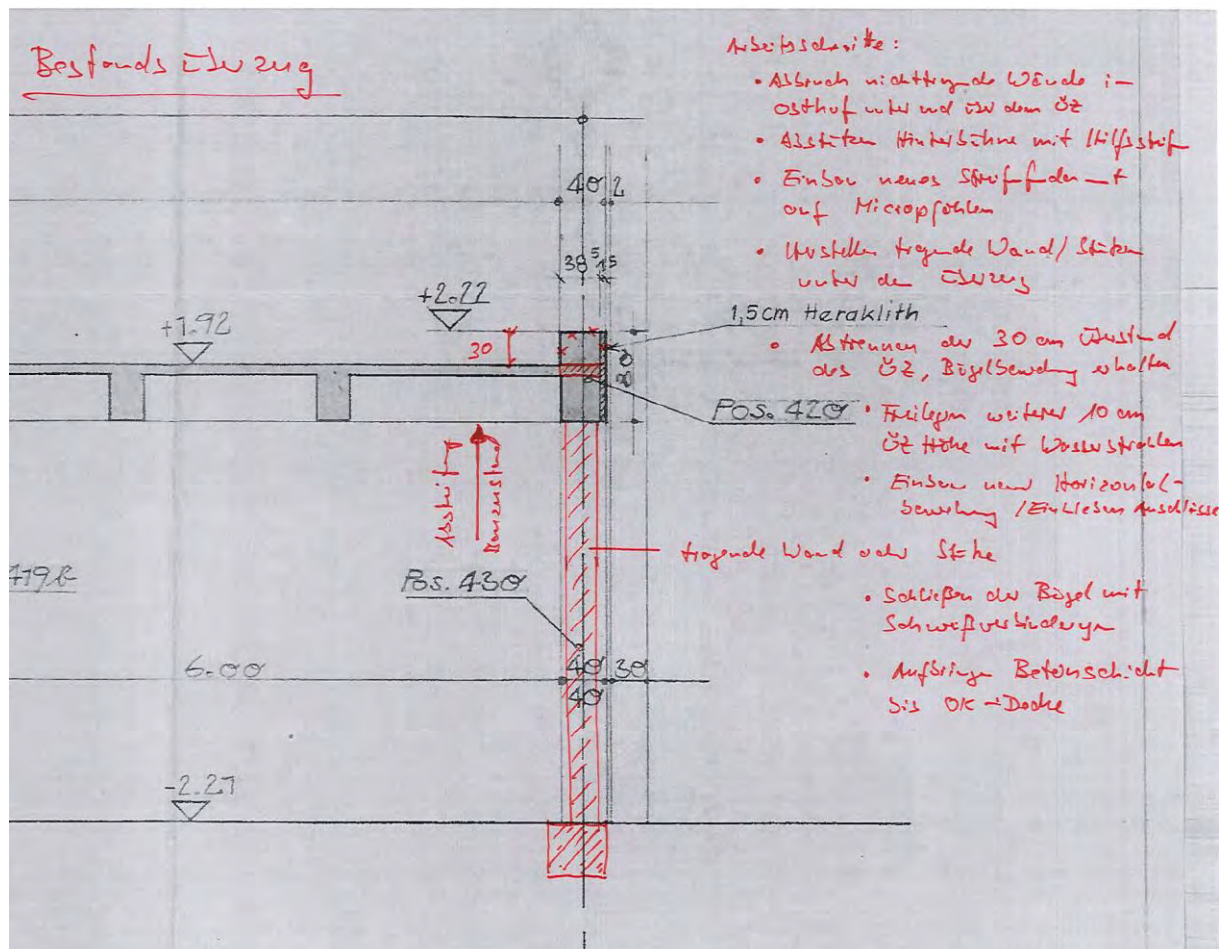 Bestandsüberzug
Arbeitsschritte:
• Abbruch nichttragende Wände im
Osthof unter und über dem ÜZ
• Abstützen Hinterbühne mit Hilfsstreif
• Einbau neues Streiffdament
auf Micropfählen
• Herstellen tragende Wand/Stützen
unter dem Überzug
• Abtrennen der 30 cm Überstand
des ÜZ, Bügelbewehrung erhalten
• Freilegen weiterer 10 cm
ÜZ Höhe mit Wasserstrahlen
• Einbau neuer Horizontal-
bewehrung / Einkleben Anschlüsse
tragende Wand oder Stütze
• Schließen der Bügel mit
Schweißverbindungen
• Aufbringen Betonschicht
bis OK-Decke
40 2
38⁵ 1⁵
+2.22
+1.92
30
1,5cm Heraklith
80
Pos. 420
Absteifung
Pos. 430
6.00
40 30
40
-2.27